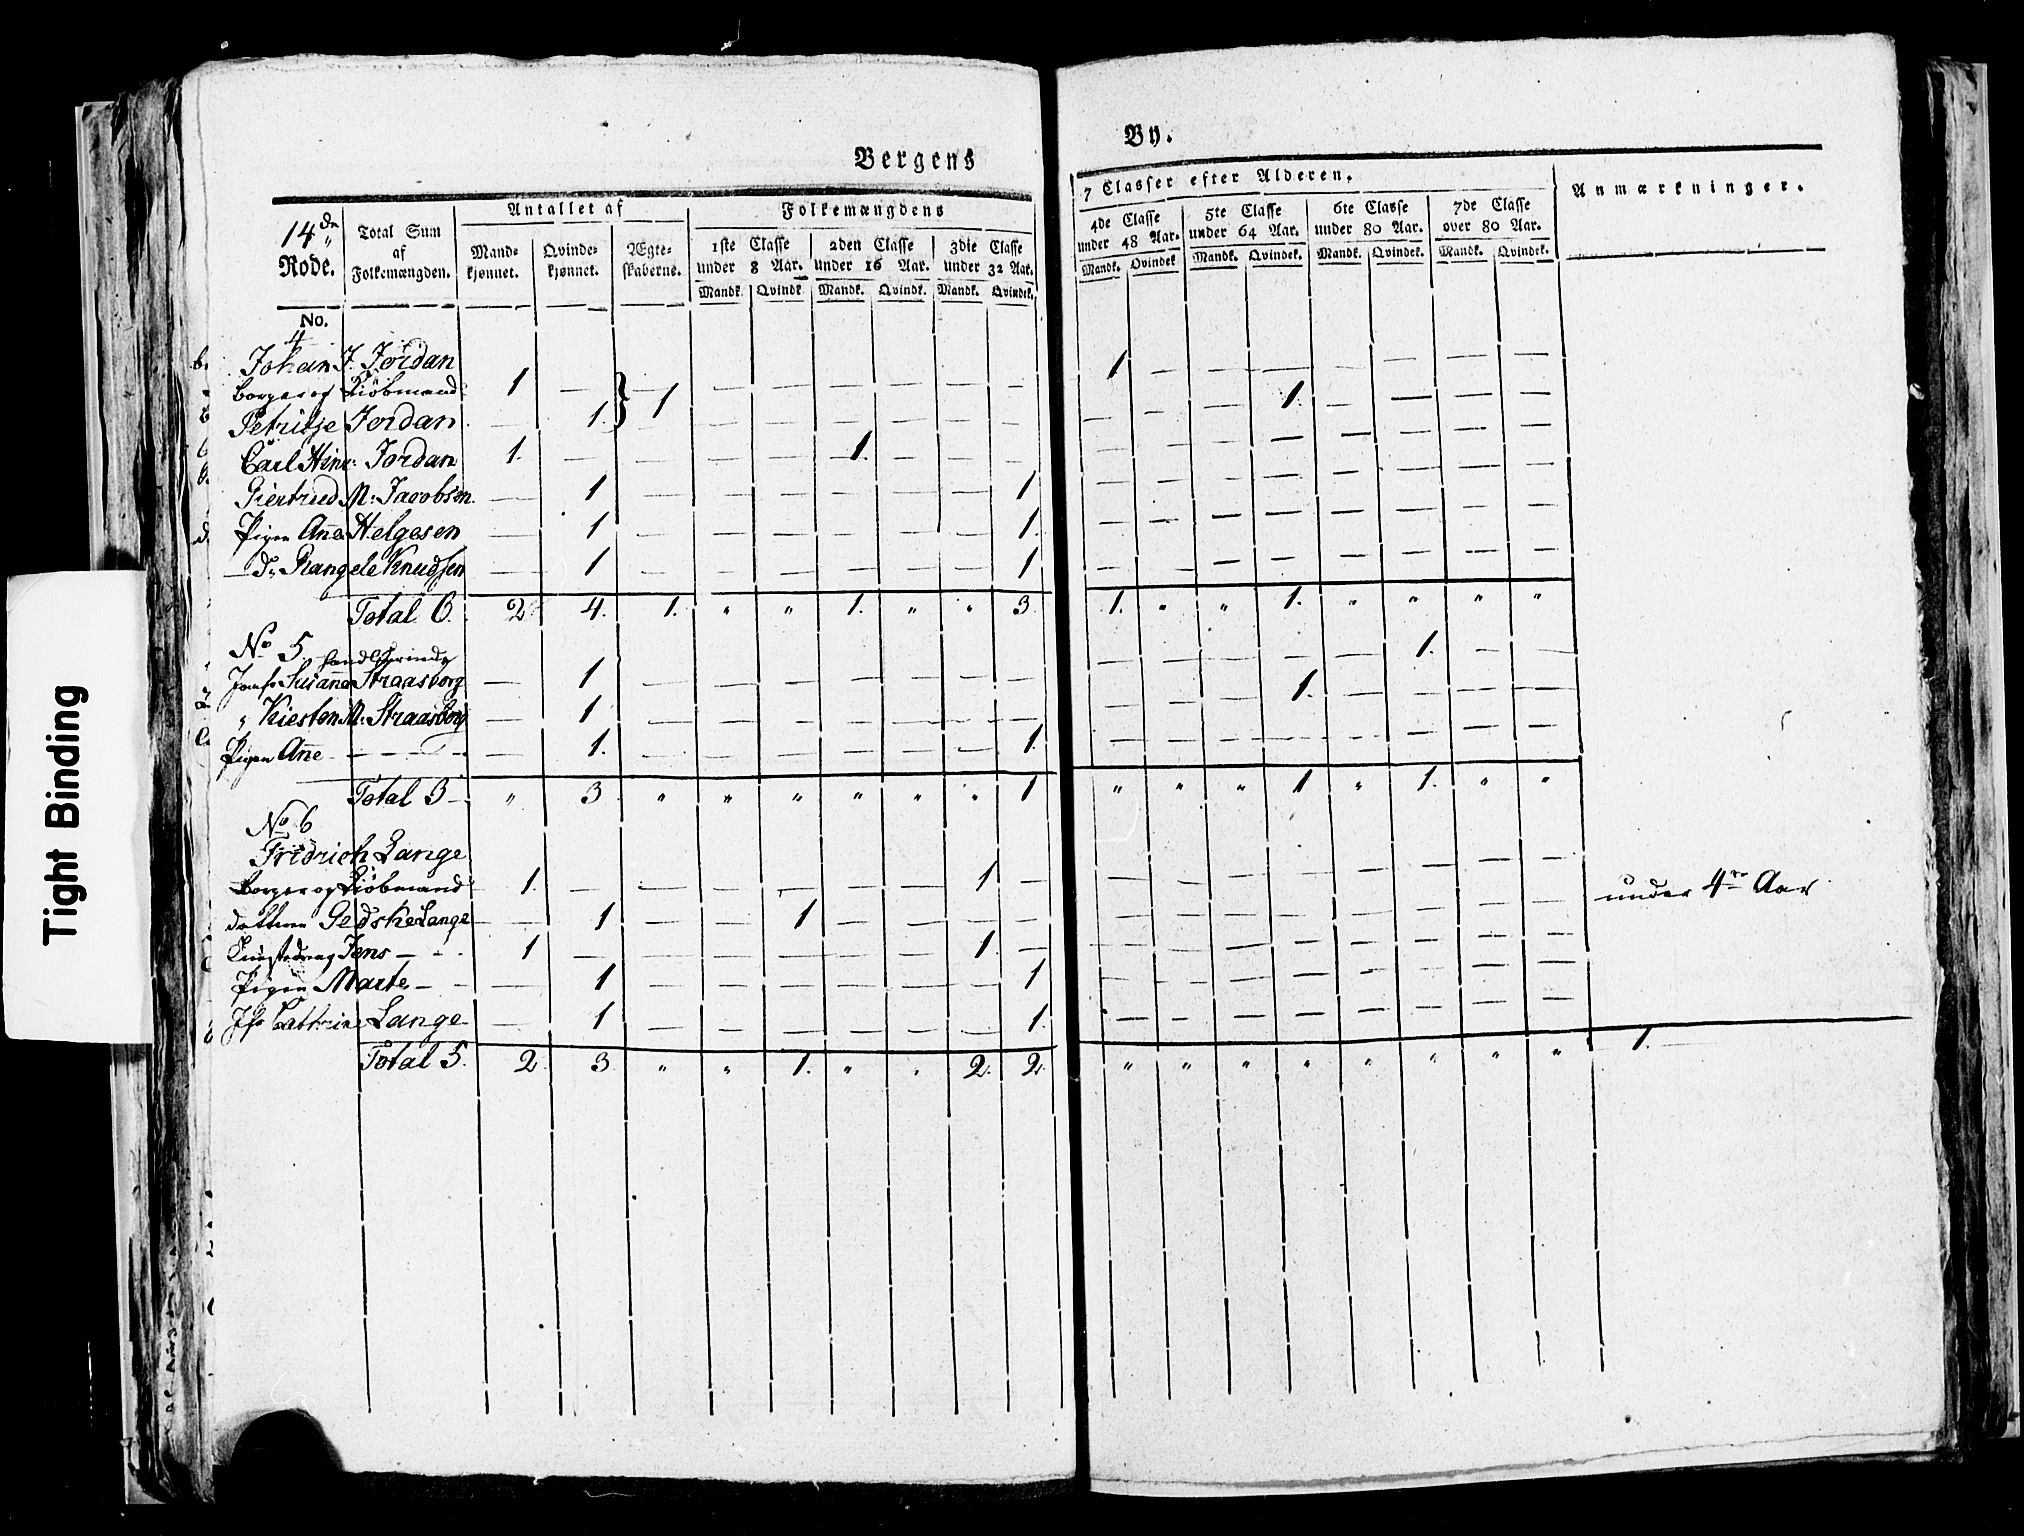 Tight Binding
Bergens By.
14de Rode.
Total Sum af Folkemængden.
Antallet af
Mandkjønnet. Qvindekjønnet. Ægteskaberne.
Folkemængdens 7 Classer efter Alderen.
1ste Classe under 8 Aar. 2den Classe under 16 Aar. 3die Classe under 32 Aar. 4de Classe under 48 Aar. 5te Classe under 64 Aar. 6te Classe under 80 Aar. 7de Classe over 80 Aar.
Mandk. Qvindk. Mandk. Qvindk. Mandk. Qvindek. Mandk. Qvindek. Mandk. Qvindek. Mandk. Qvindek. Mandk. Qvindek.
Anmærkninger.
No.
4
Johan J. Jordan
Borger og Kiöbmand 1 — } 1 — — — — — — 1 — — — — — — —
Petritje Jordan — 1. — — — — — — — — — 1. — — — —
Carl Hinr: Jordan 1. — — — — 1. — — — — — — — — — — —
Giertrud M: Jacobsen — 1 — — — — — — 1 — — — — — — — —
Pigen Ane Helgesen — 1 — — — — — — 1. — — — — — — — —
— do Rangele Knudsen — 1 — — — — — — 1 — — — — — — — —
Total 6. 2 4. 1. " " 1. " " 3. 1. " " 1. " " " "
No 5
Handlerinde
Jomfr Susanna Straasborg — 1 — — — — — — — — — — — — 1. — —
" Kiesten M: Straasborg — 1 — — — — — — — — — — 1. — — — —
Pigen Ane — 1. — — — — — — 1. — — — — — — — —
Total 3 " 3 " " " " " " 1 " " " 1 " 1. " "
No 6
Fridrich Lange
Borger og Kiöbmand 1. — — — — — — 1 — — — — — — — — —
datteren Gedske Lange — 1 — — 1 — — — — — — — — — — — — under 4re Aar
Jens — 1 — — — — — — 1. — — — — — — — — —
Pigen Marte — — 1 — — — — — — 1 — — — — — — — —
Jfr Cathrine Lange — 1 — — — — — — 1. — — — — — — — —
Total 5. 2 3 " " 1. " " 2. 2. " " " " " " " " 1.